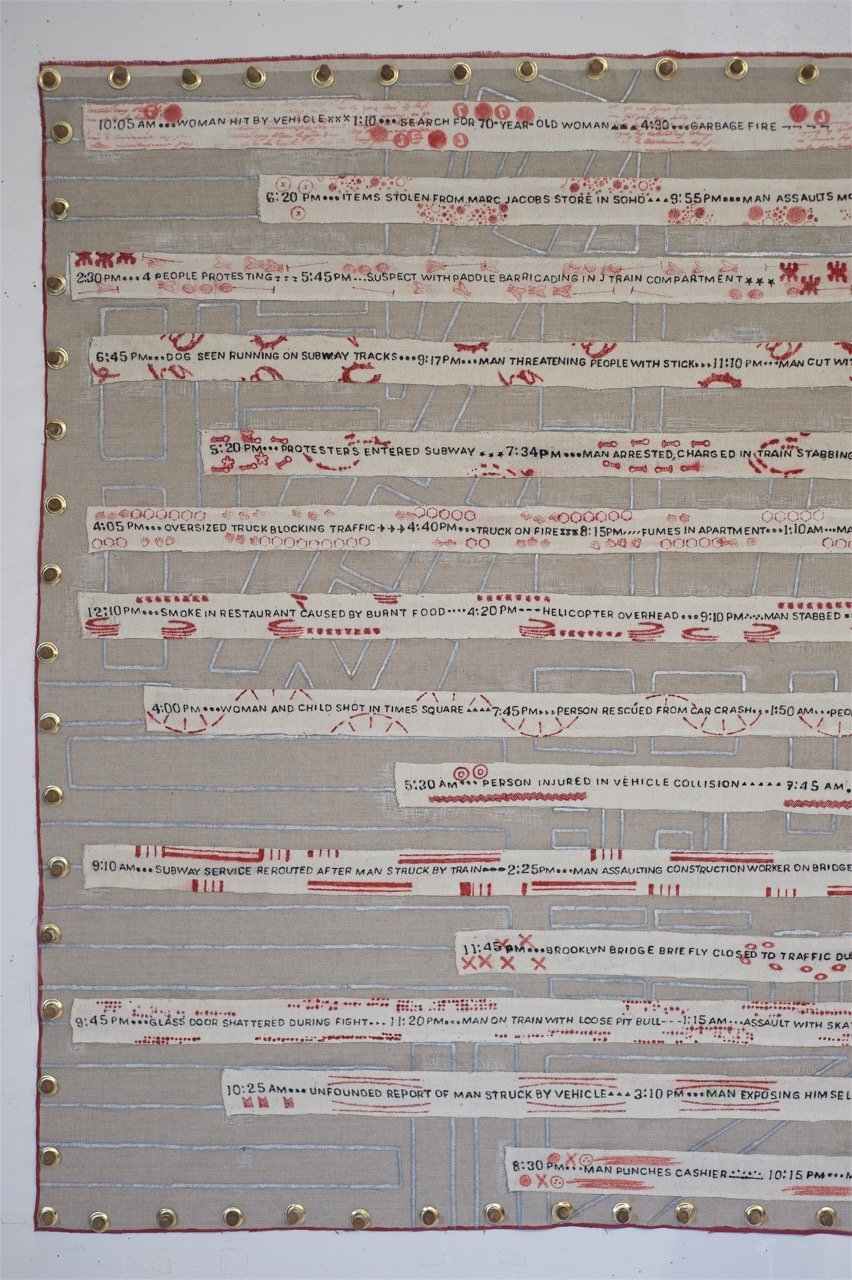 10:05 AM•••WOMAN HIT BY VEHICLE×××1:10•••SEARCH FOR 70-YEAR-OLD WOMAN▲▲▲4:30...GARBAGE FIRE →→→→
6:20 PM•••ITEMS STOLEN FROM MARC JACOBS STORE IN SOHO▲▲▲9:55PM•••MAN ASSAULTS
2:30PM•••4 PEOPLE PROTESTING 5:45PM...SUSPECT WITH PADDLE BARRICADING IN J TRAIN COMPARTMENT★★★
6:45 PM•••DOG SEEN RUNNING ON SUBWAY TRACKS•••9:17PM•••MAN THREATENING PEOPLE WITH STICK•••11:10 PM•••MAN CUT
5:20 PM•••PROTESTERS ENTERED SUBWAY ★★★7:34PM•••MAN ARRESTED, CHARGED IN TRAIN STABBING
4:05 PM•••OVERSIZED TRUCK BLOCKING TRAFFIC→→→4:40PM•••TRUCK ON FIRE 8:15PM FUMES IN APARTMENT•••1:10AM
12:10PM•••SMOKE IN RESTAURANT CAUSED BY BURNT FOOD••••4:20 PM---HELICOPTER OVERHEAD•••9:10 PM MAN STABBED
4:00 PM•••WOMAN AND CHILD SHOT IN TIMES SQUARE▲▲▲▲7:45PM PERSON RESCUED FROM CAR CRASH 1:50 AM
5:30 AM•••PERSON INJURED IN VEHICLE COLLISION▲▲▲▲▲ 7:45 AM
9:10 AM•••SUBWAY SERVICE REROUTED AFTER MAN STRUCK BY TRAIN•••2:25PM•••MAN ASSAULTING CONSTRUCTION WORKER ON BRIDGE
11:45 PM•••BROOKLYN BRIDGE BRIEFLY CLOSED TO TRAFFIC
9:45 PM•••GLASS DOOR SHATTERED DURING FIGHT...11:20 PM•••MAN ON TRAIN WITH LOOSE PIT BULL---1:15 AM...ASSAULT WITH
10:25 AM•••UNFOUNDED REPORT OF MAN STRUCK BY VEHICLE▲▲▲ 3:10 PM•••MAN EXPOSING
8:30 PM•••MAN PUNCHES CASHIER 10:15 PM•••